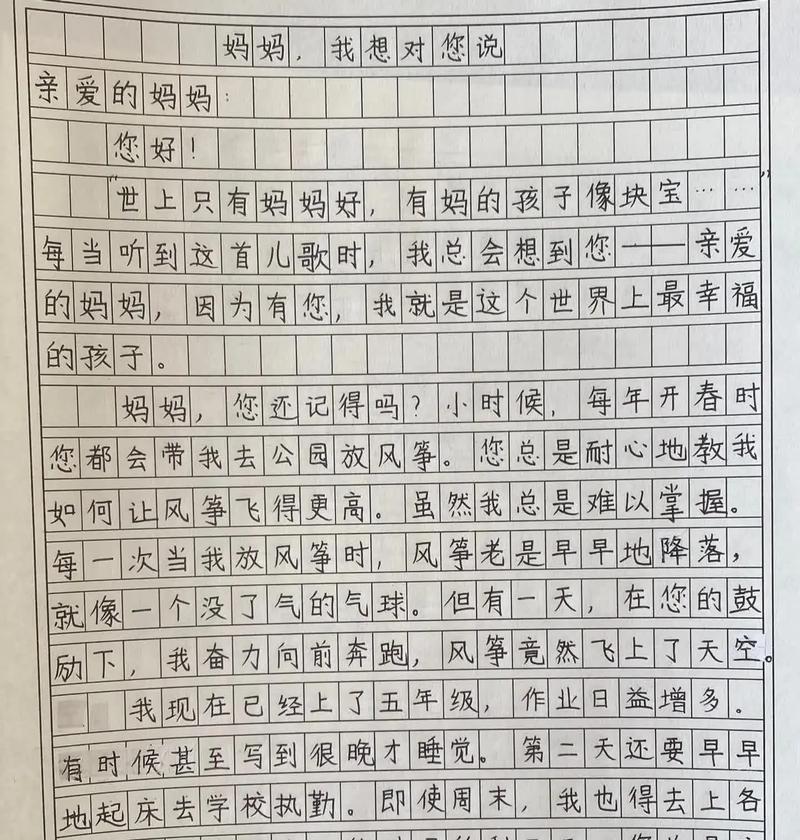 妈妈，我想对您说
亲爱的妈妈：
您好！
“世上只有妈妈好，有妈的孩子像块宝……”
每当听到这首儿歌时，我总会想到您——亲爱
的妈妈，因为有您，我就是这个世界上最幸福
的孩子。
妈妈，您还记得吗？小时候，每年开春时
您都会带我去公园放风筝。您总是耐心地教我
如何让风筝飞得更高。虽然我总是难以掌握。
每一次当我放风筝时，风筝老是早早地降落，
就像一个没了气的气球。但有一天，在您的鼓
励下，我奋力向前奔跑，风筝竟然飞上了天空。
我现在已经上了五年级，作业日益增多。
有时候甚至写到很晚才睡觉。第二天还要早早
地起床去学校执勤。即使周末，我也得去上各